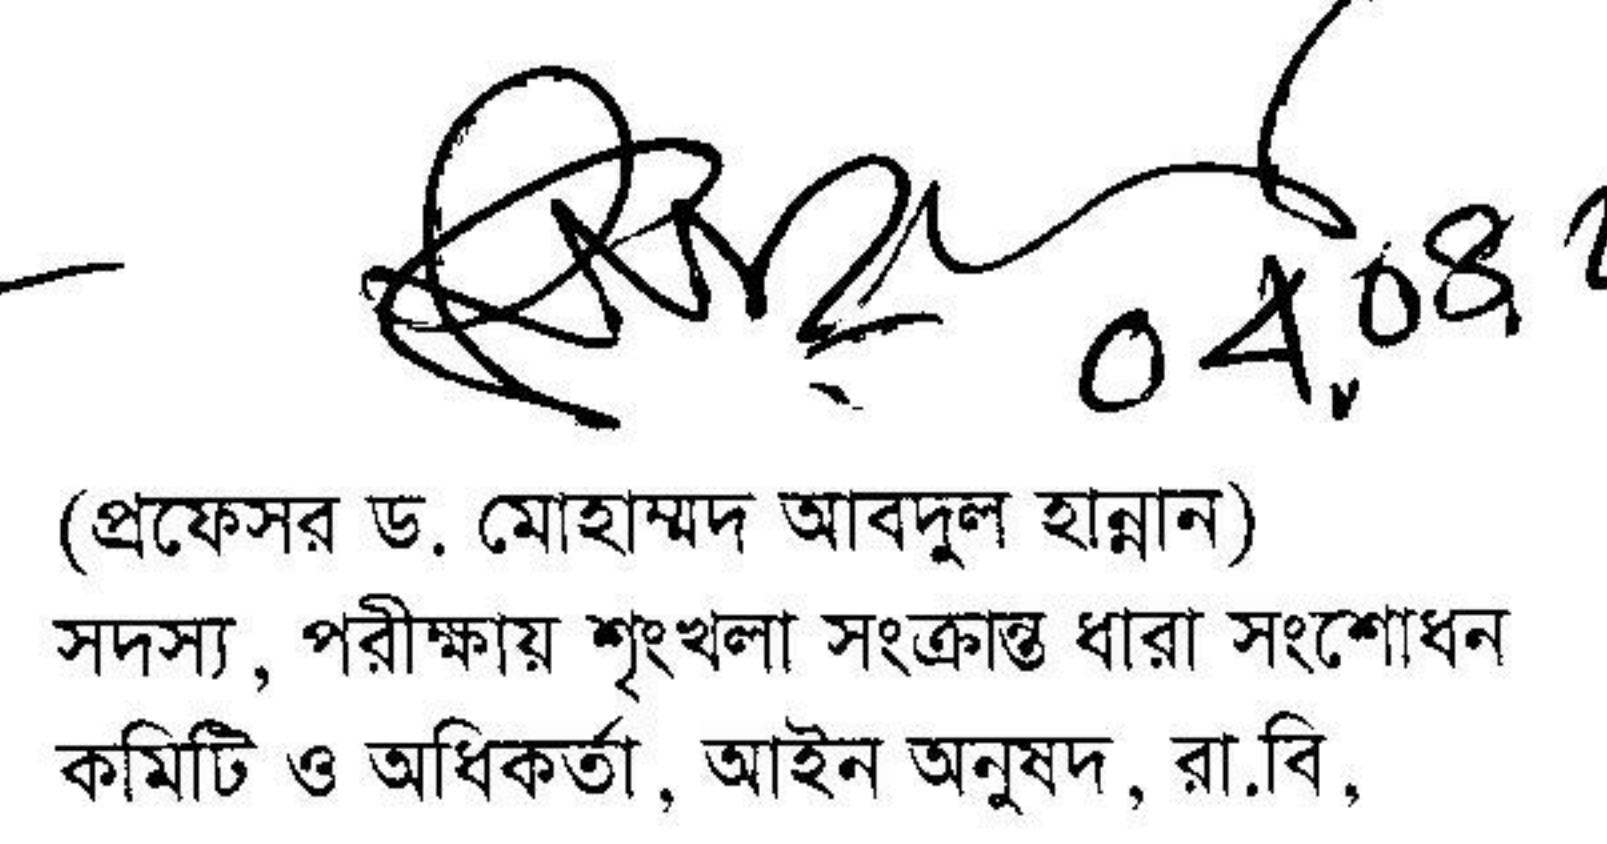 04.08.
(প্রফেসর ড. মোহাম্মদ আবদুল হান্নান)
সদস্য, পরীক্ষায় শৃংখলা সংক্রান্ত ধারা সংশোধন
কমিটি ও অধিকর্তা, আইন অনুষদ, রা.বি,